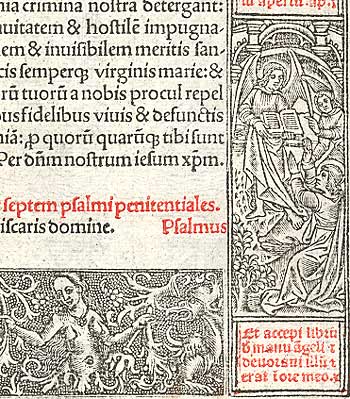 nia crimina nostra detergant:
nuitatem & hostilē impugna-
lem & inuisibilem meritis san-
cis semperqȝ virginis marie: &
rū tuorū a nobis procul repel
bus fidelibus viuis & defunctis
niā: ꝑ quorū quarūqȝ tibi sunt
Per dn̄m nostrum iesum xp̄m.
septem psalmi penitentiales.
iscaris domine. Psalmus
Et accepi librū
d̄ manu āgeli ⁊
deuoraui illū ⁊
erat ī ore meo.